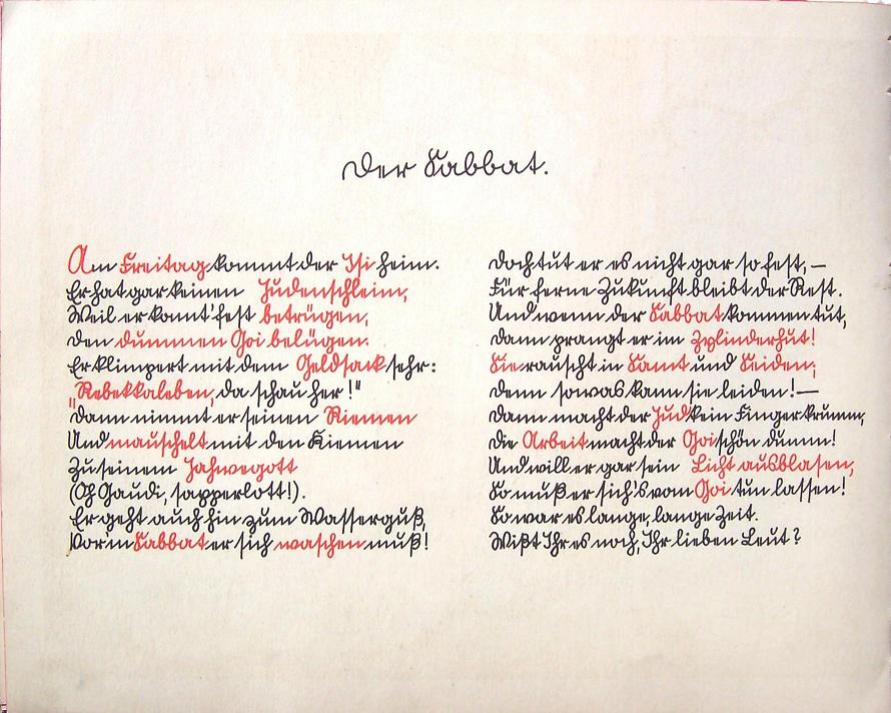 Der Sabbat.
Am Freitag kommt der Isi heim.
Er hat gar keinen Judenschleim,
Weil er konnt' fest betrügen,
den dummen Goi belügen.
Er klimpert mit dem Geldsack sehr:
„Rebekkaleben, da schau her!"
Dann nimmt er seinen Riemen
Und mauschelt mit den Kiemen
Zu seinem Jahwegott
(Oh Gaudi, sapperlott!).
Er geht auch hin zum Wasserguß,
Vor'm Sabbat er sich waschen muß!
Doch tut er es nicht gar so fest, —
Für ferne Zukunft bleibt der Rest.
Und wenn der Sabbat kommen tut,
Dann prangt er im Zylinderhut!
Sie rauscht in Samt und Seiden;
Denn sowas kann sie leiden! —
Dann macht der Jud kein Finger krumm,
Die Arbeit macht der Goi schön dumm!
Und will er gar sein Licht ausblasen,
So muß er sich's vom Goi tun lassen!
So war es lange, lange Zeit.
Wißt Ihr es noch, Ihr lieben Leut?